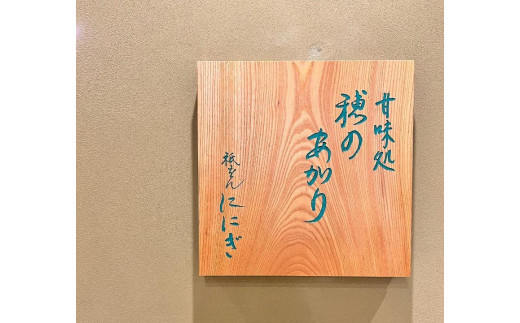 甘味処
穂の
あかり
祇をん ににぎ